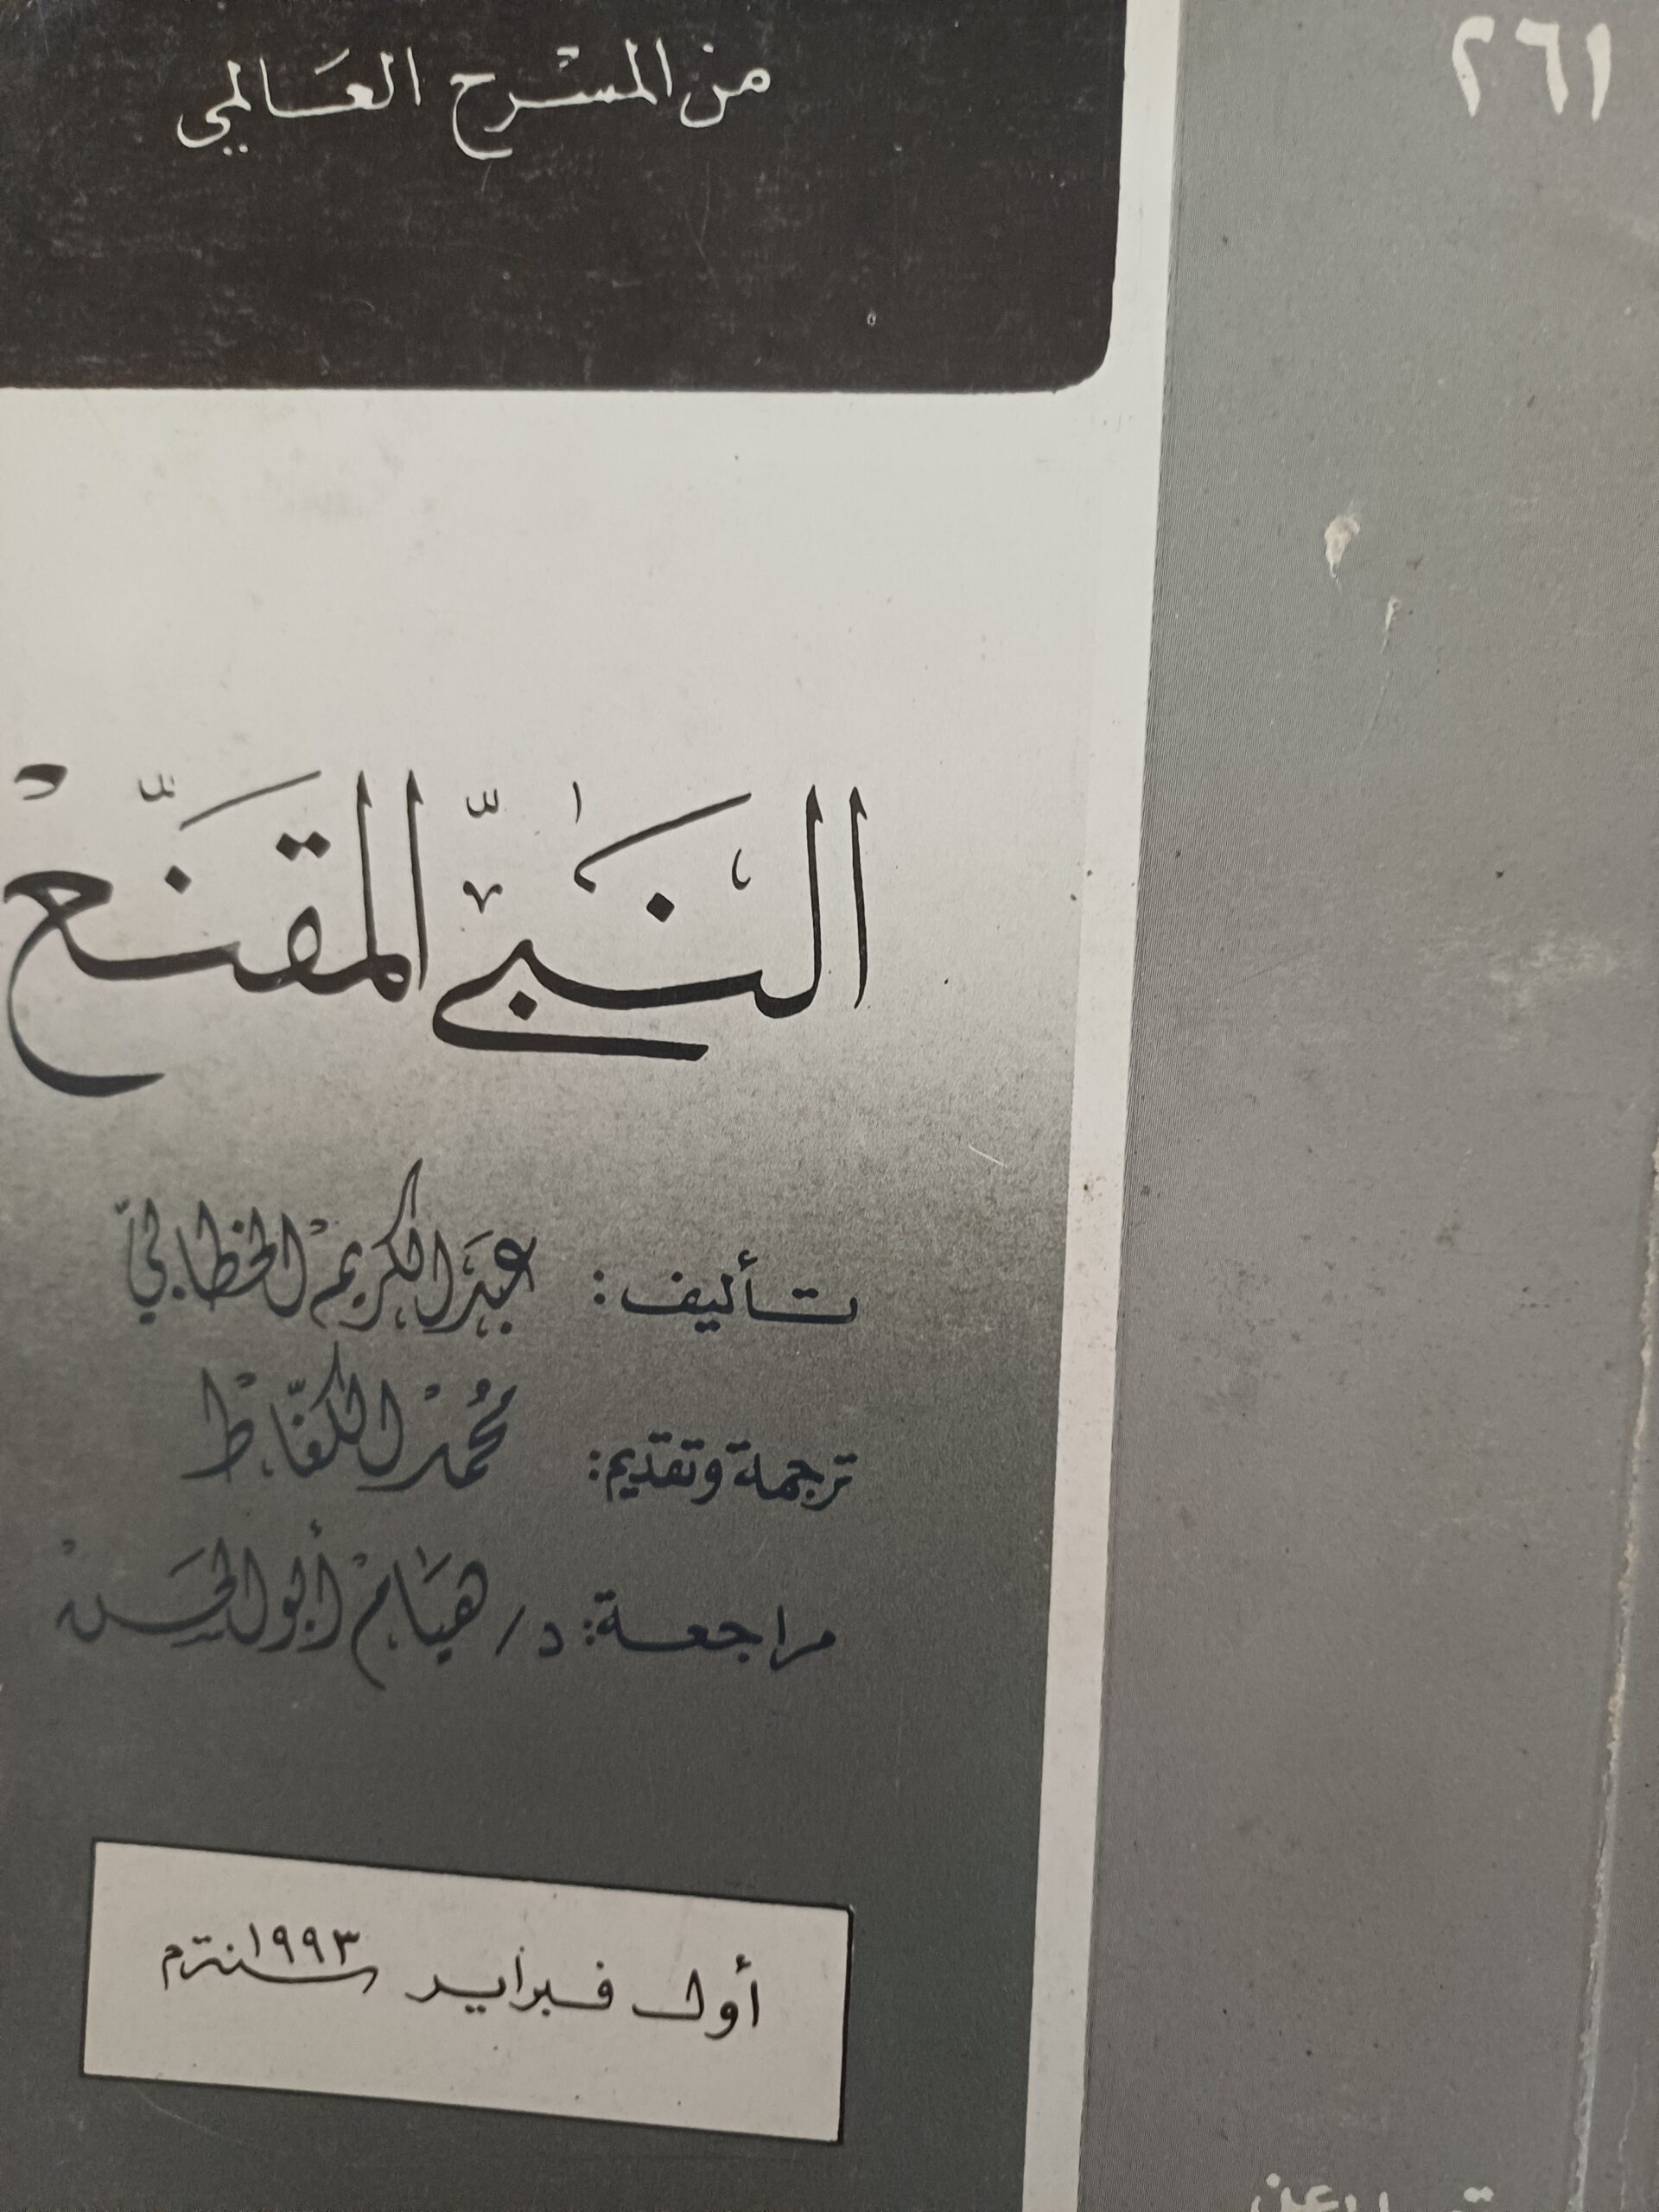 ٢٦١
من المسرح العالمي
النبي المقنع
تأليف: عبد الكريم الخطابي
ترجمة وتقديم: محمد الكفاط
مراجعة: د/ هيام أبو الحسن
أول فبراير سنة ١٩٩٣م